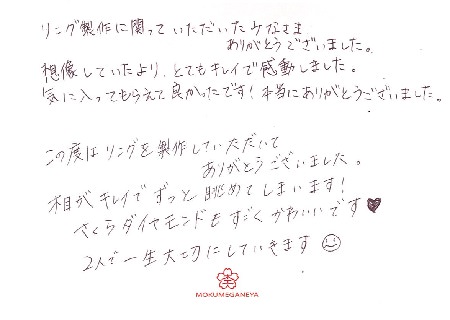 リング製作に関っていただいたみなさま、
ありがとうございました。
想像していたより、とてもキレイで感動しました。
気に入ってもらえて良かったです！本当にありがとうございました。
この度はリングを製作していただいて
ありがとうございました。
木目がキレイでずっと眺めてしまいます！
さくらダイヤモンドもすごくかわいいです♥
2人で一生大切にしていきます☺
MOKUMEGANEYA